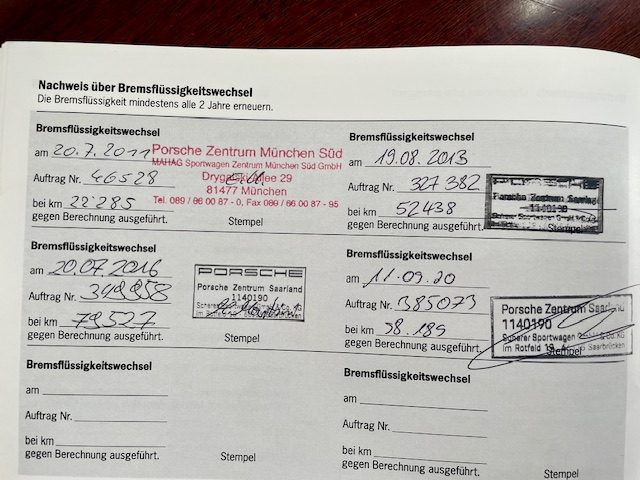 Nachweis über Bremsflüssigkeitswechsel
Die Bremsflüssigkeit mindestens alle 2 Jahre erneuern.
Bremsflüssigkeitswechsel
am 20.7.2011
Auftrag Nr. 46528
bei km 22'285
gegen Berechnung ausgeführt.
Porsche Zentrum München Süd
MAHAG Sportwagen Zentrum München Süd GmbH
Drygalski-Allee 29
81477 München
Tel. 089 / 86 00 87 - 0, Fax 089 / 86 00 87 - 95
Stempel
Bremsflüssigkeitswechsel
am 19.08.2013
Auftrag Nr. 327 382
bei km 52438
gegen Berechnung ausgeführt.
Porsche Zentrum Saarland
1140190
Stempel
Bremsflüssigkeitswechsel
am 20.07.2016
Auftrag Nr. 349958
bei km 79527
gegen Berechnung ausgeführt.
PORSCHE
Porsche Zentrum Saarland
1140190
Stempel
Bremsflüssigkeitswechsel
am 11.09.20
Auftrag Nr. 385073
bei km 98.189
gegen Berechnung ausgeführt.
Porsche Zentrum Saarland
1140190
Scherer Sportwagen GmbH & Co. KG
Im Rotfeld 19 Saarbrücken
Stempel
Bremsflüssigkeitswechsel
am
Auftrag Nr.
bei km
gegen Berechnung ausgeführt.
Stempel
Bremsflüssigkeitswechsel
am
Auftrag Nr.
bei km
gegen Berechnung ausgeführt.
Stempel